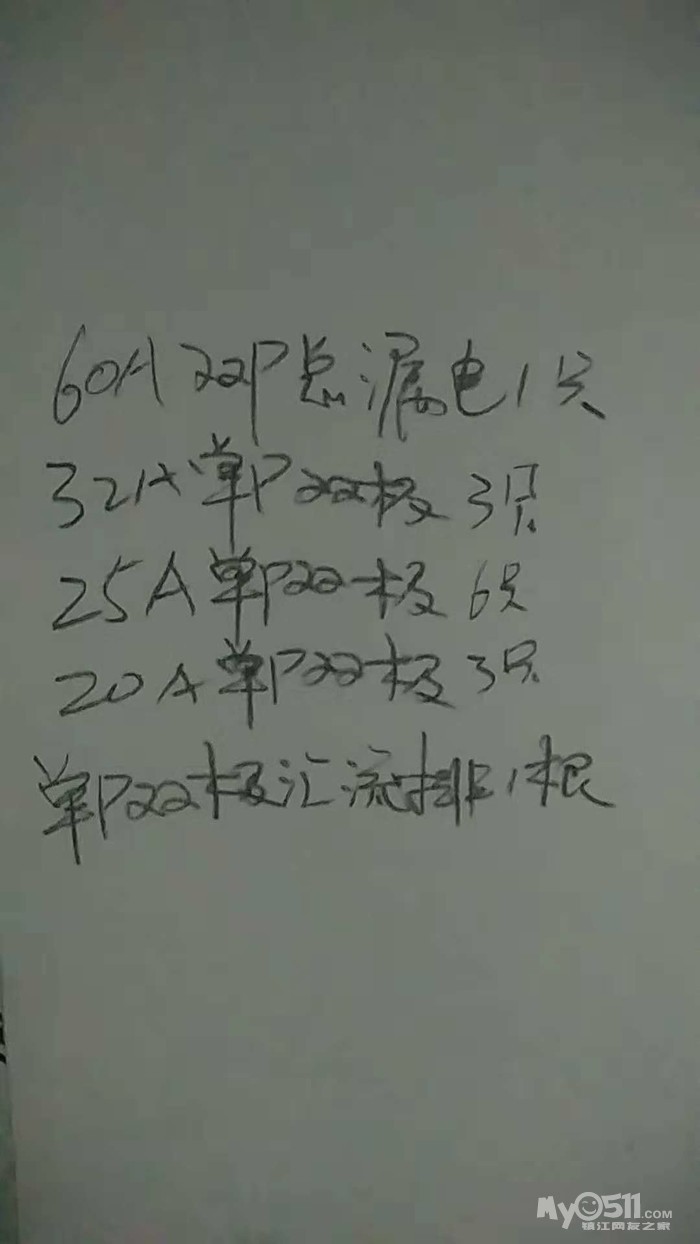 60A双P总漏电1只
32A单P双极3只
25A单P双极6只
20A单P双极3只
单P双极汇流排1根
My0511.COM
镇江网友之家